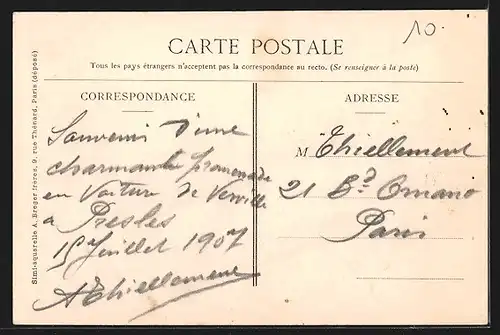 10.
CARTE POSTALE
Tous les pays étrangers n'acceptent pas la correspondance au recto. (Se renseigner à la poste)
CORRESPONDANCE
Souvenir d'une
charmante promenade
en voiture de Verville
a Presles
15 Juillet 1907
AThiellement
ADRESSE
M Thiellement
21 Bd Ornano
Paris
Simi-aquarelle A. Breger frères, 9, rue Thénard, Paris (déposé)